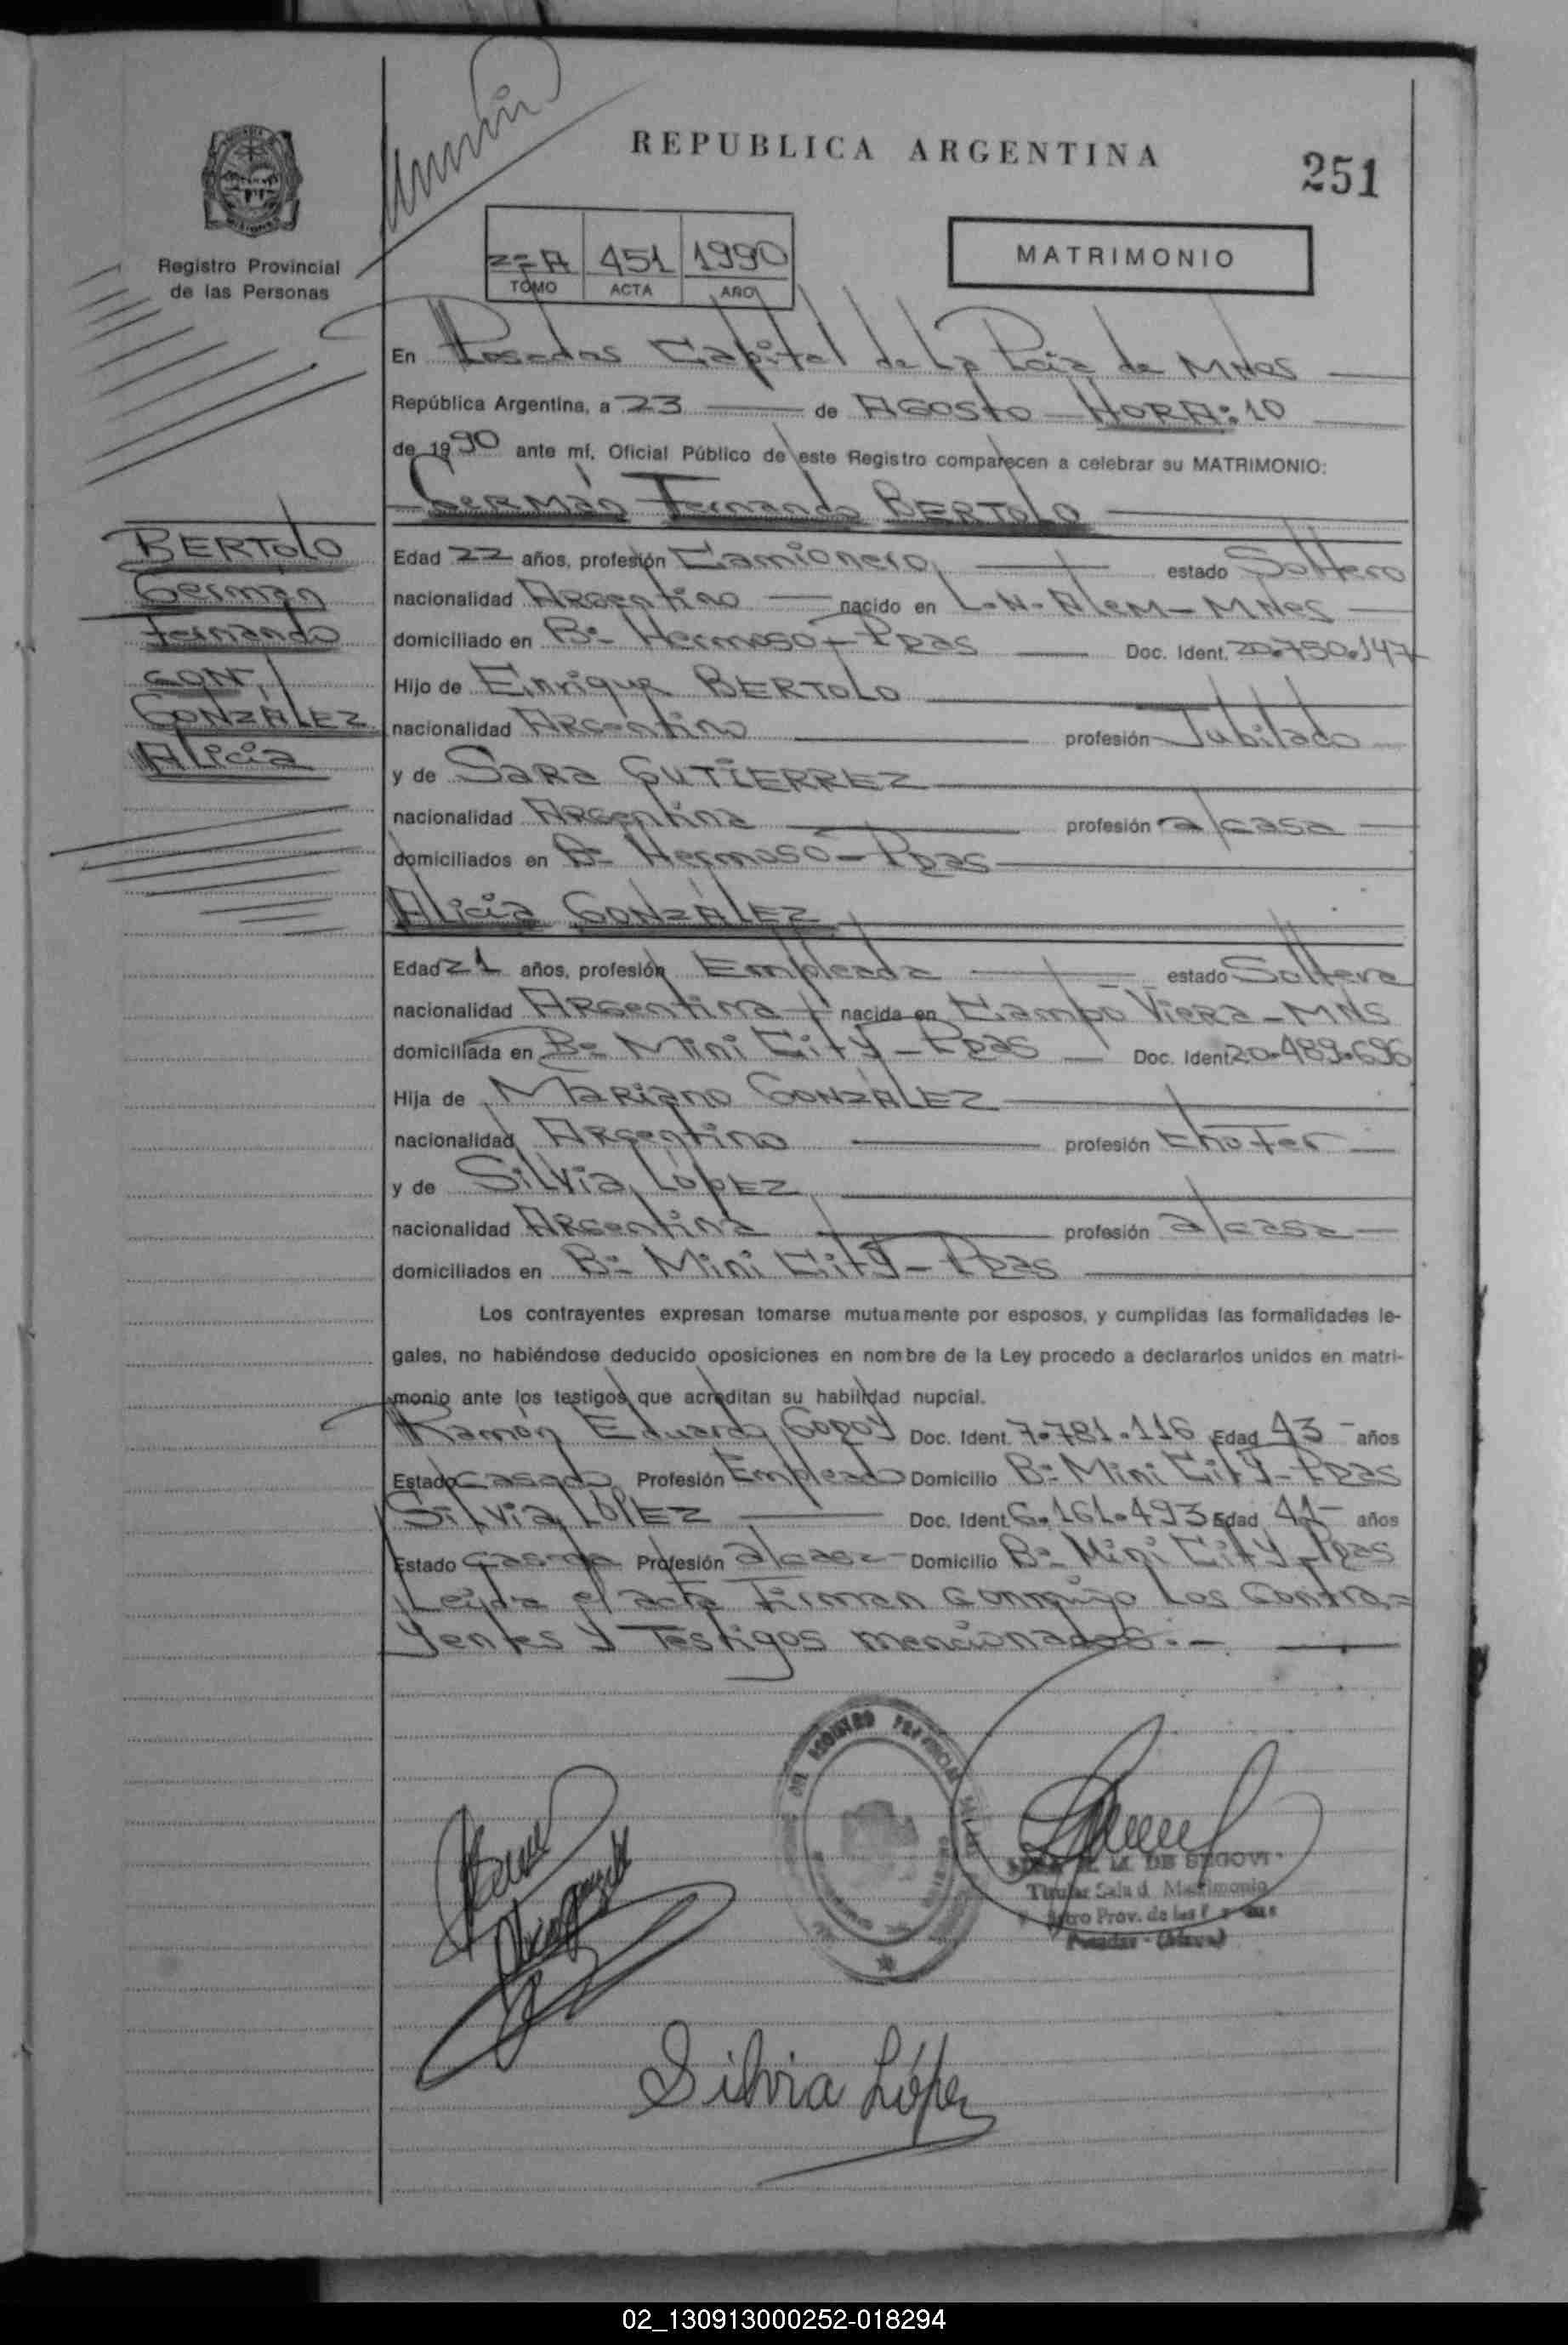 REPUBLICA ARGENTINA
251
Registro Provincial
de las Personas
451 1990
TOMO ACTA AÑO
MATRIMONIO
En Posadas Capital de La Pcia de MNes
República Argentina, a 23 de AGOSTO HORA: 10
de 1990 ante mí, Oficial Público de este Registro comparecen a celebrar su MATRIMONIO:
Germán Fernando BERTOLO
BERTOLO
Germán
Fernando
CON
GONZÁLEZ
Alicia
Edad 22 años, profesión Camionero estado Soltero
nacionalidad Argentino nacido en L.N. Alem - MNes
domiciliado en Bº Hermoso - Pdas Doc. Ident. 20.750.147
Hijo de Enrique BERTOLO
nacionalidad Argentino profesión Jubilado
y de Sara GUTIERREZ
nacionalidad Argentina profesión a/casa
domiciliados en Bº Hermoso - Pdas
Alicia GONZÁLEZ
Edad 21 años, profesión Empleada estado Soltera
nacionalidad Argentina nacida en Campo Viera - MNS
domiciliada en Bº Mini City - Pdas Doc. Ident 20.489.696
Hija de Mariano GONZÁLEZ
nacionalidad Argentino profesión Chofer
y de Silvia LópEZ
nacionalidad Argentina profesión a/casa
domiciliados en Bº Mini City - Pdas
Los contrayentes expresan tomarse mutuamente por esposos, y cumplidas las formalidades le-
gales, no habiéndose deducido oposiciones en nombre de la Ley procedo a declararlos unidos en matri-
monio ante los testigos que acreditan su habilidad nupcial.
Ramón Eduardo Godoy Doc. Ident. 7.781.116 Edad 43 años
Estado casado Profesión Empleado Domicilio Bº Mini City - Pdas
Silvia LÓPEZ Doc. Ident. 6.161.493 Edad años
Estado casada Profesión a/casa Domicilio Bº Mini City - Pdas
Leída el acta Firman conmigo los contra=
yentes y Testigos mencionados.-
DE SEGOVI
Titular Sala d Matrimonio
Prov. de las
Posadas - (Mnes)
Silvia López
02_130913000252-018294